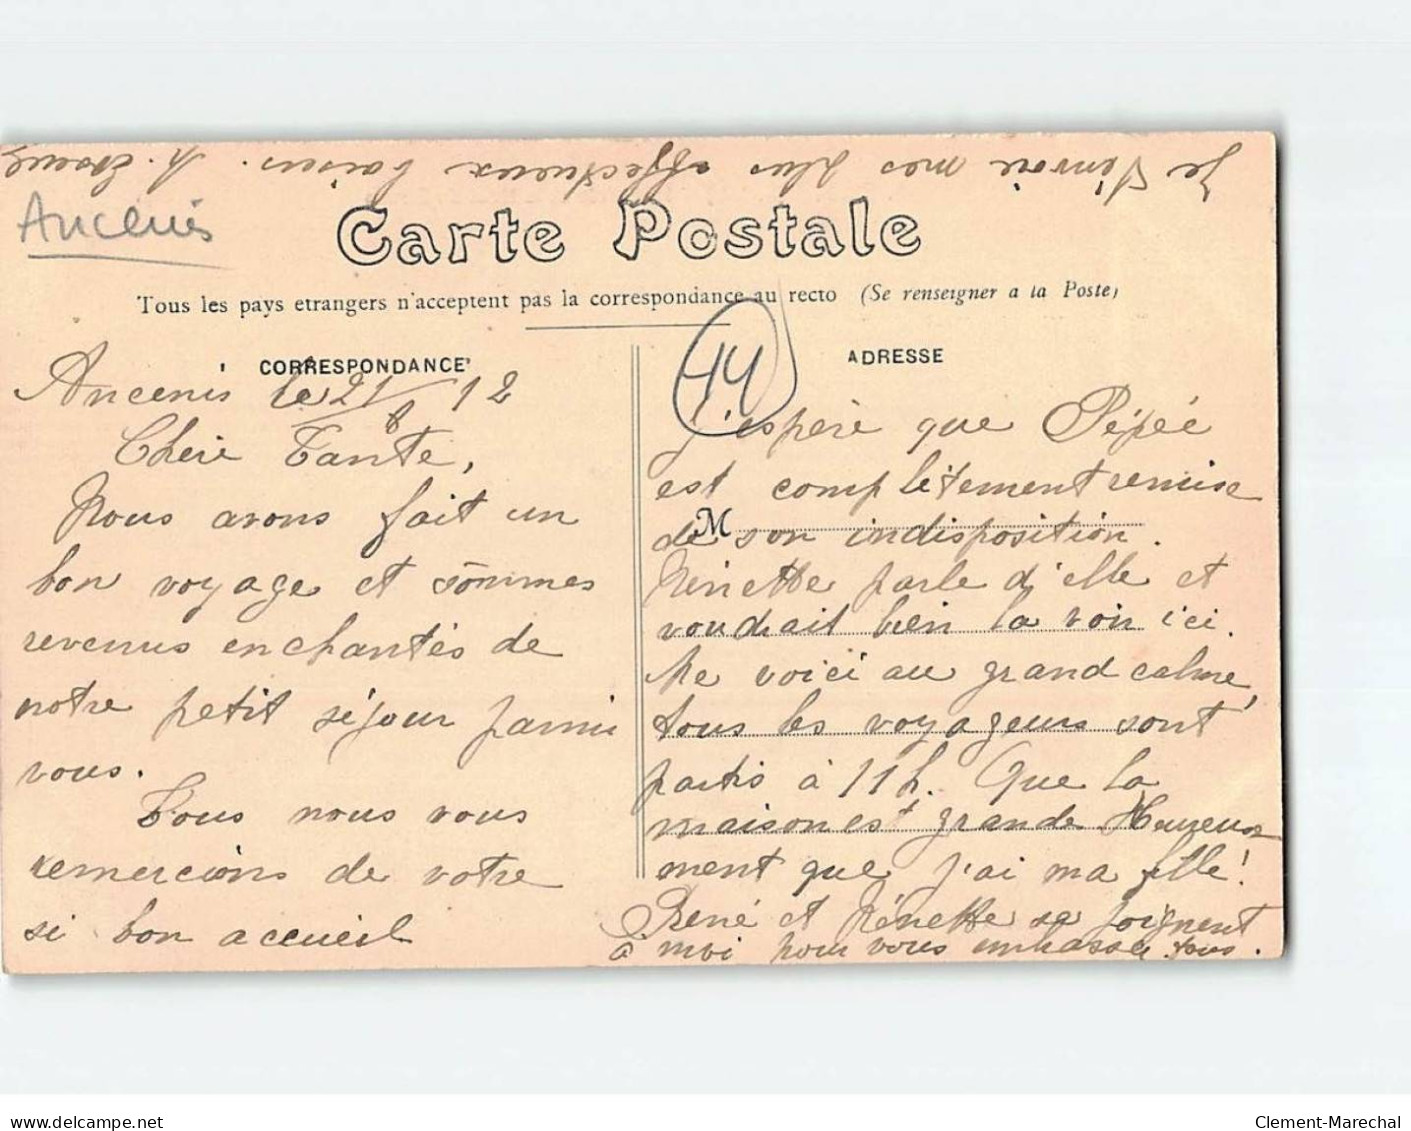 Je t'envoie mes plus affectueux baisers. h.
Ancenis
Carte Postale
Tous les pays etrangers n'acceptent pas la correspondance au recto (Se renseigner a la Poste)
CORRESPONDANCE
Ancenis le 21/8 12
Chère Tante,
Nous avons fait un
bon voyage et sommes
revenus enchantés de
notre petit séjour parmi
vous.
Tous nous vous
remercions de votre
si bon accueil
44
ADRESSE
M
J'espère que Pépée
est complètement remise
de son indisposition.
Nénette parle d'elle et
voudrait bien la voir ici.
Me voici au grand calme,
tous les voyageurs sont
partis à 11h. Que la
maison est grande Heureuse
ment que j'ai ma fille!
René et Nénette se joignent
à moi pour vous embrasser tous.
delcampe.net
Clement-Marechal